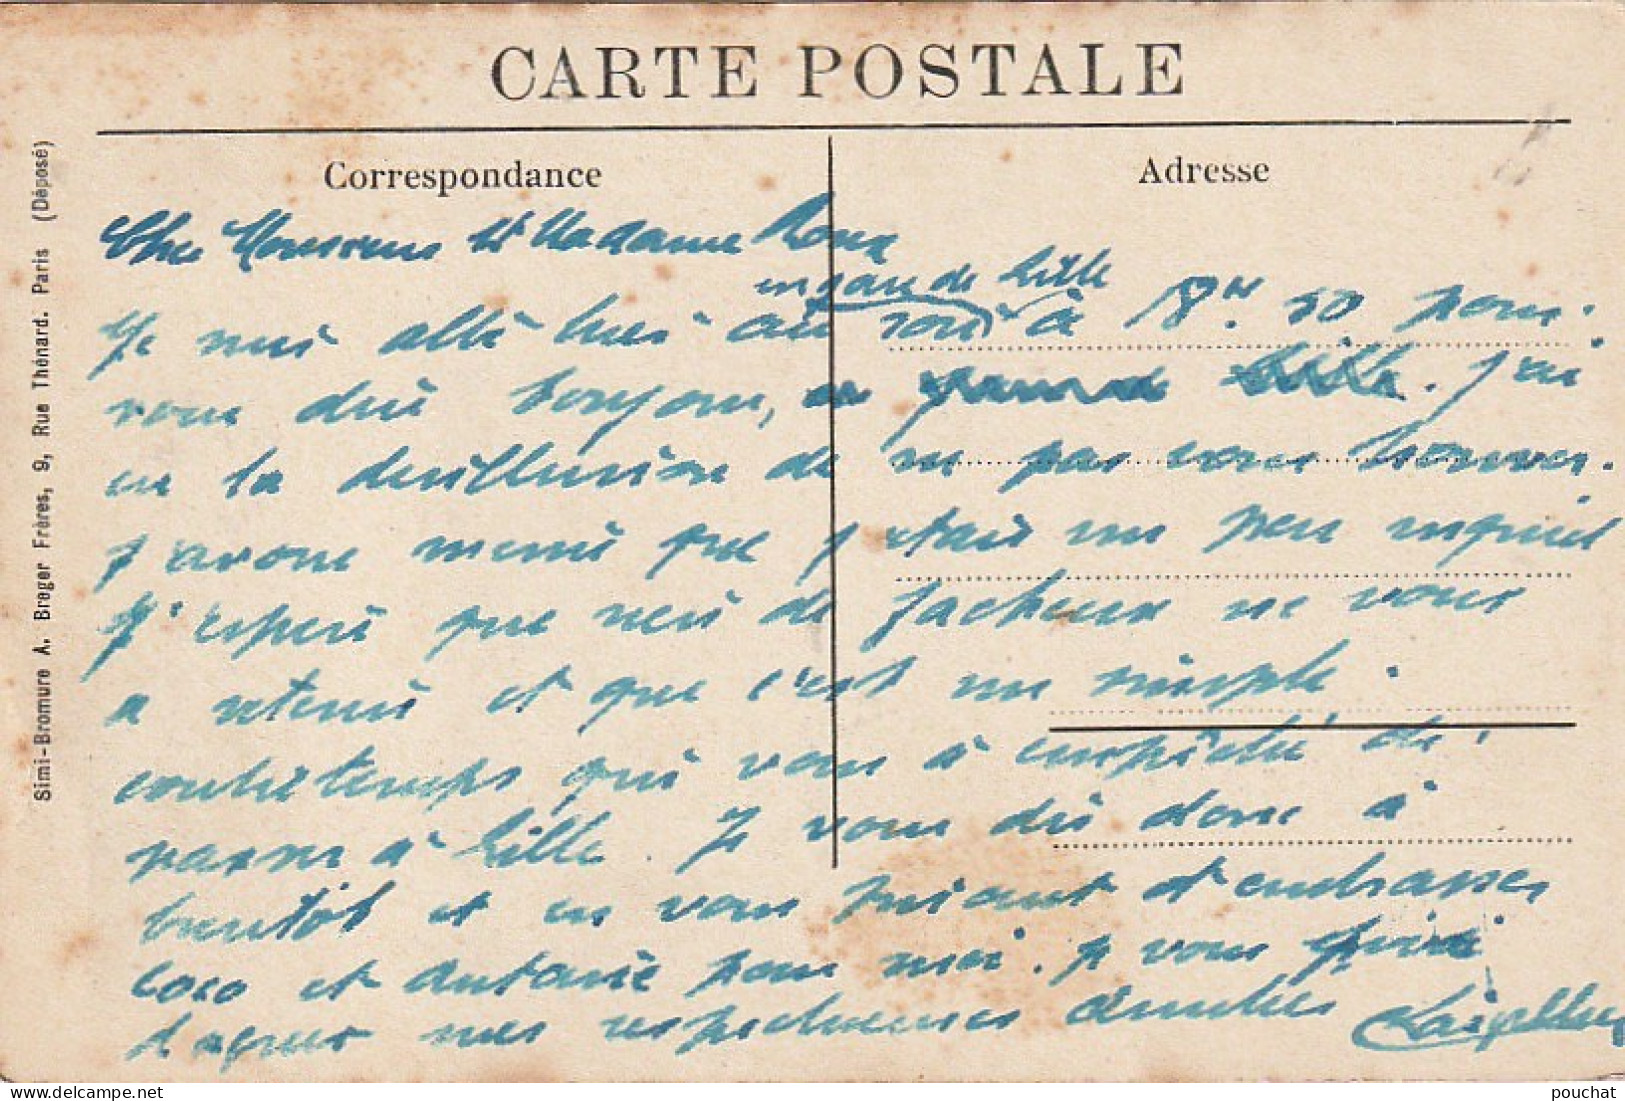 CARTE POSTALE
Correspondance
Adresse
Simi-Bromure A. Breger Frères, 9, Rue Thénard. Paris (Déposé)
Cher Monsieur et Madame Roux
en gare de Lille
Je suis allé hier au soir à 18H. 50 pour
vous dire bonjour, en gare de Lille. J'ai
eu la desillusion de ne pas vous trouver.
J'avoue meme que j'etais un peu inquiet
J'espere que rien de facheux ne vous
a retenu et que c'est un simple
contretemps qui vous a empêché de
passer à Lille. Je vous dis donc à
bientôt et en vous priant d'embrasser
Coco et Antoine pour moi. Je vous prie
d'agreer mes respectueuses amitiés
pouchat